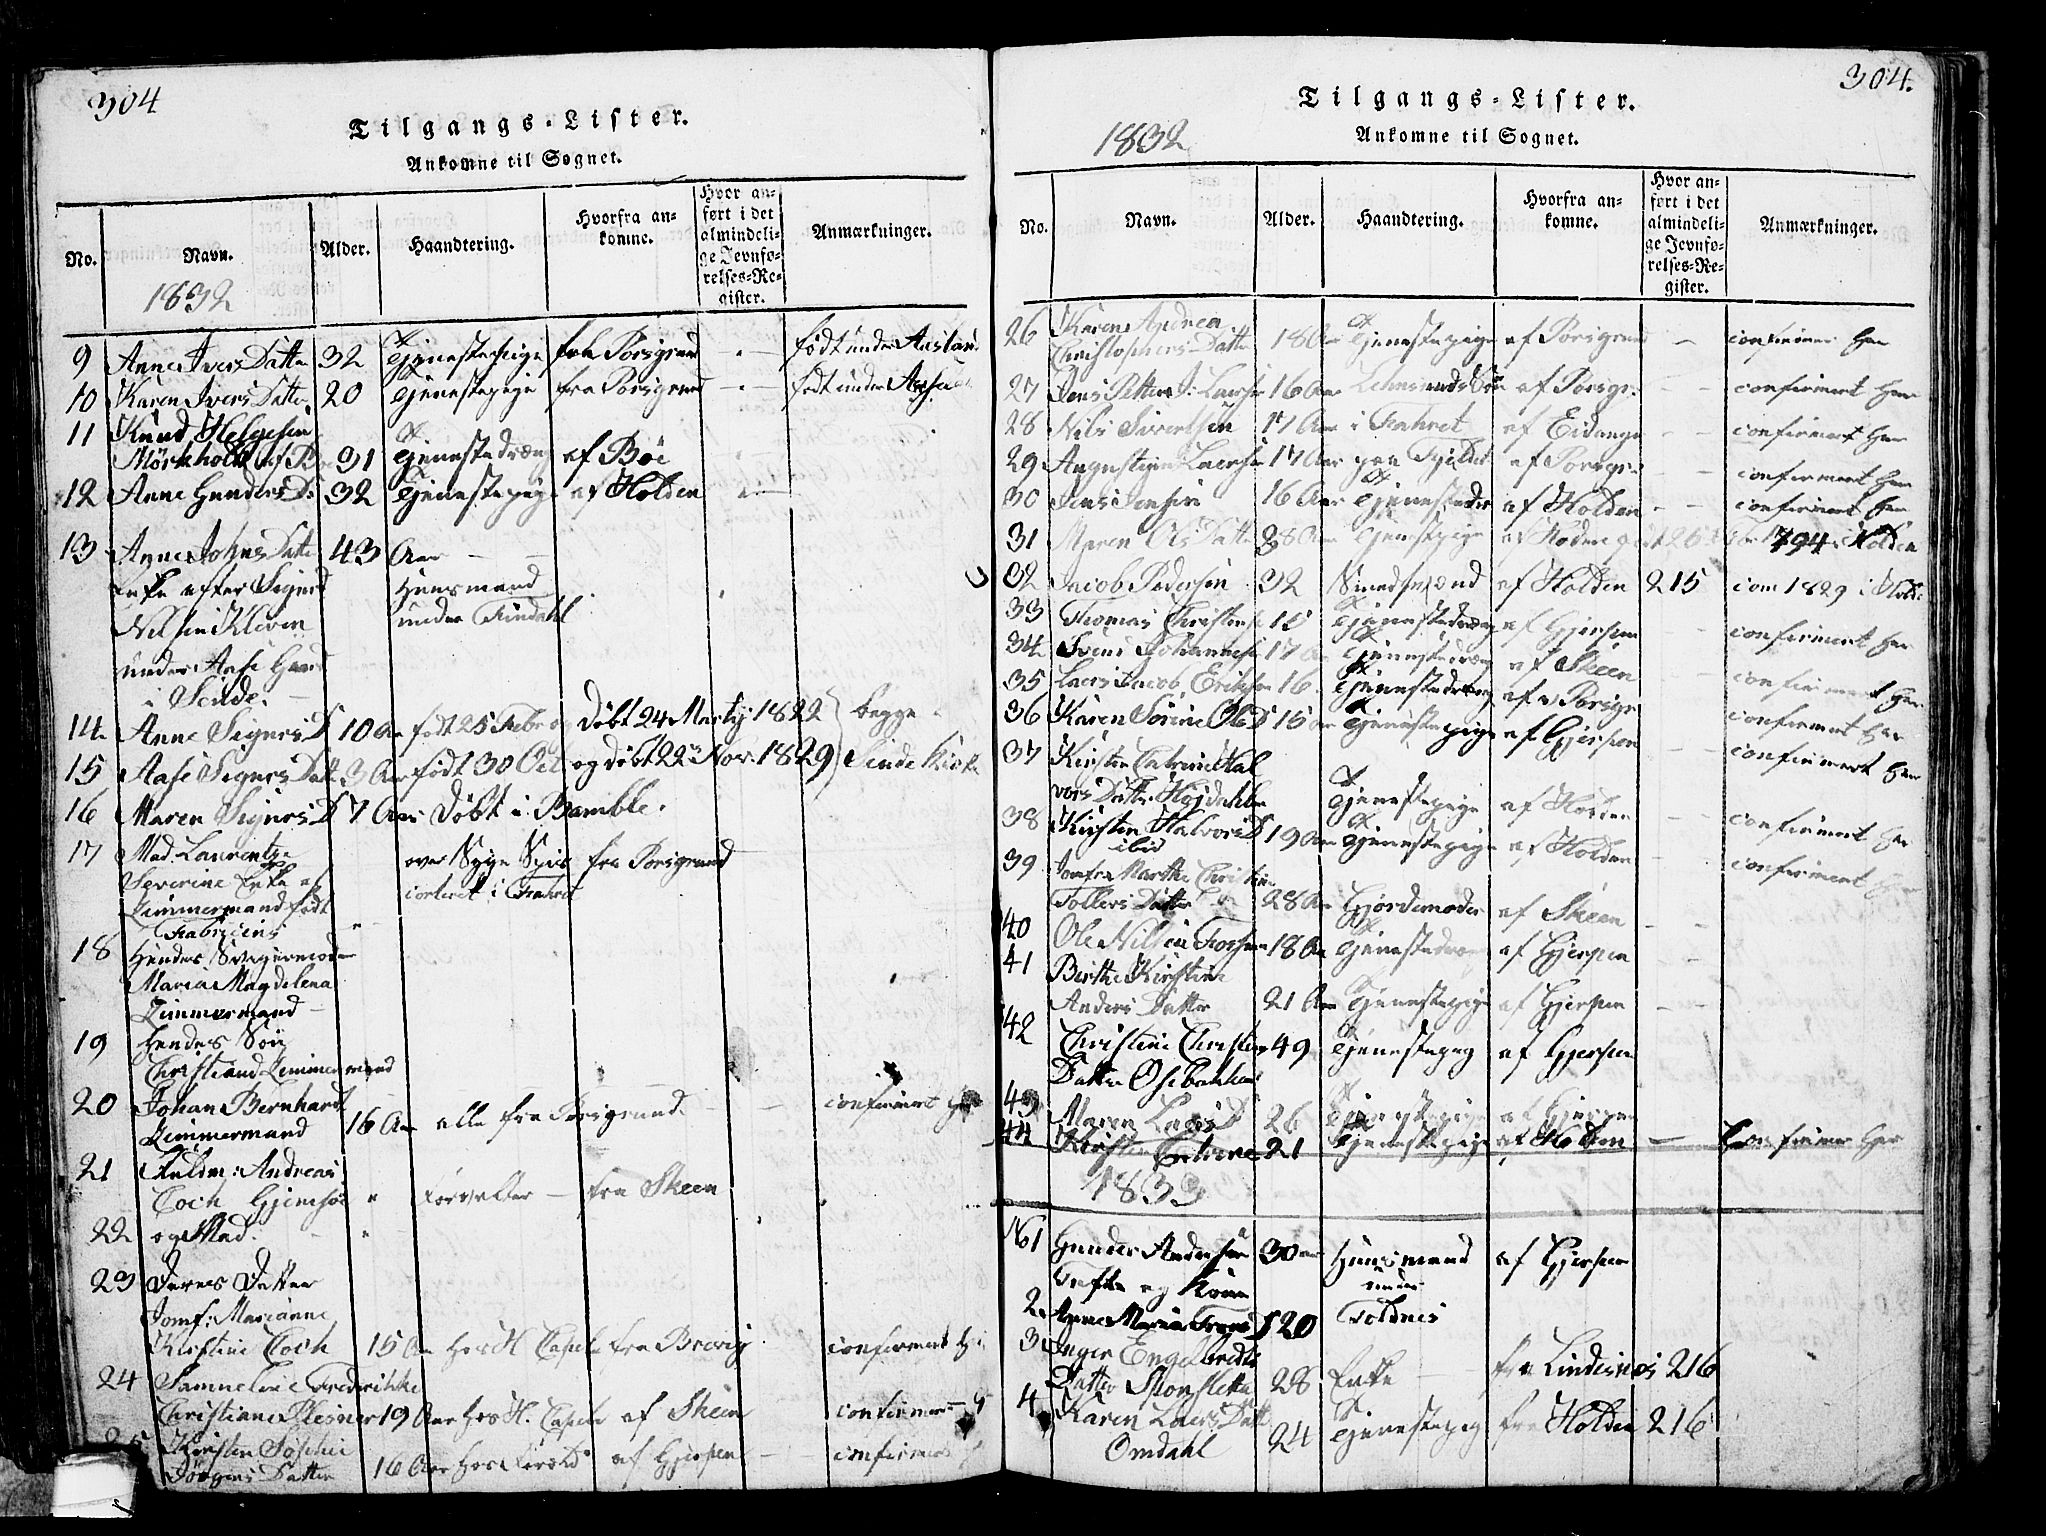 304
Tilgangs-Lister.
Ankomne til Sognet.
No.
Navn.
1832
Alder.
Haandtering.
Hvorfra an-
komne.
Hvor an-
ført i det
almindeli-
ge Jevnfø-
relses-Re-
gister.
Anmærkninger.
9 Anne Ivers Datter 32 Tjenestepige fra Porsgrund født under
10 Karen Ivers Datter 20 Tjenestepige fra Porsgrund født under
11 Knud Helgesen
Mörkhold af Bö 31 Tjenestedræng af Böe
12 Anne Gunders D: 32 Tjenestepige af Holden
13 Anne Johns Datter 43 Aar
Enke efter Signrd Huusmand
Nilsen Kleven under Findahl
under Aase Gaard
i Sende.
14 Anne Signrs D 10 Aar født 25 Febr og Döbt 24 Martij 1822 begge
15 Aase Signrs Datt 3 Aar født 30 Oct og döbt 22 Nov. 1829 Sende Kirke
16 Maren Signrs D 7 Aar Döbt i Bamble.
17 Mad. Laurentze
Severine Enke af fra Porsgrund
Zimmermand født
Fabricius
18 Hendes Svigermoder
Maria Magdelena
Zimmermand
19 Hendes Sön
Christiand Zimmermand
20 Johan Bernhard
Zimmermand 16 Aar alle fra Porsgrund confirmert her
21 Fuldm: Andreas
Coch Gjemsöe Forvalter fra Skeen
22 og Mad.
23 Deres Datter
Jomf: Marianne
Kirstine Coch 15 Aar hos H. Capell fra Brevig confirmert
24 Samueline Frederikke
Christiane Plesner 19 Aar hos H. Capell af Skeen confirmer
25 Kirsten Sophie
Jörgens Datter 16 Aar hos af Gjerpen confirmer
304.
Tilgangs-Lister.
1832
Ankomne til Sognet.
No.
Navn.
Alder.
Haandtering.
Hvorfra an-
komne.
Hvor an-
ført i det
almindeli-
ge Jevnfø-
relses-Re-
gister.
Anmærkninger.
26 Karen Andrea
Christophers Datter 18 Aar Tjenestepige af Porsgrund confirmer her
27 Jens Petter J: Laersen 16 Aar Lehnsmands Sön af Porsgr: confirmert her
28 Nils Sivertsen 17 Aar i Frahret af Eidanger confirmert her
29 Augustinus Laersen 17 Aar paa af Porsgr: confirmert her
30 Jens Jensen 16 Aar Tjenestedr af Holden confirmert her
31 Maren Ols Datter 28 Aar Tjenestepige af Holden 1794 i Holden
32 Jacob Pedersen 32 Smedsvend af Holden 215 com 1829 i Holden
33 Thomas Christens 15 Tjenestedræng af Gjerpen confirmert her
34 Svend Johannesen 17 Aar Tjenestedræng af Skeen confirmert her
35 Laers Jacob Eriksen 16 Tjenestedræng af Porsgr confirmert her
36 Karen Sörine Ols D 15 Aar Tjenestepige af Gjerpen confirmert her
37 Kirsten Catrine Hal
vors Datter Höjdahl Tjenestepige af Holden confirmert her
38 Kirsten Halvors D
ibid 19 Aar Tjenestepige af Holden confirmert her
39 Jomfru Marthe Christine
Tollers Datter 28 Aar Gjordemoder af Skeen
40 Ole Nilsen Fossum 18 Aar Tjenestedræng af Gjerpen
41 Birthe Kirstine
Anders Datter 21 Aar Tjenestepige af Gjerpen
42 Christine Christens 49 Tjenestepig af Gjerpen
Datter Osebakken
43 Maren Laers D 26 Tjenestepige af Gjerpen
44 Kirsten Catrine 21 Tjenestepige af Holden Confirmer her
1833
No 1 Gunder Andersen 30 aar Huusmand af Gjerpen
Tufte og Kone under
2 Anne Maria Frans D 20 Foldnes
3 Inger Engelbredts
Datter Sponsletta 28 Enke fra Lindesnes 216
4 Karen Laers Datt
Omdahl 24 Tjenestepig fra Holden 216